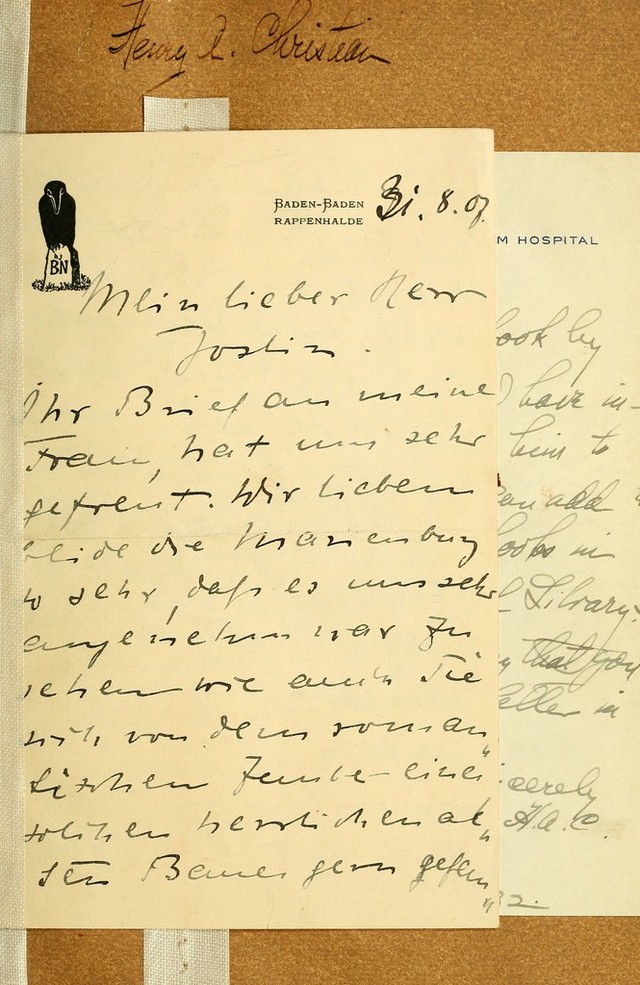 Henry A. Christian
BADEN-BADEN
RAPPENHALDE
31. 8. 07.
BN
Mein lieber Herr
Joslin.
Ihr Brief an meine
Frau, hat uns sehr
gefreut. Wir lieben
beide die Marienburg
so sehr, daß es uns sehr
angenehm war zu
sehen wie auch Sie
sich von dem roman„
tischen Zauber eines
solchen herrlichen al„
ten Baues gern gefan„
M HOSPITAL
ook by
I have in-
him to
can add
books in
Library.
that you
letter in
cerely
H.A.C.
32.